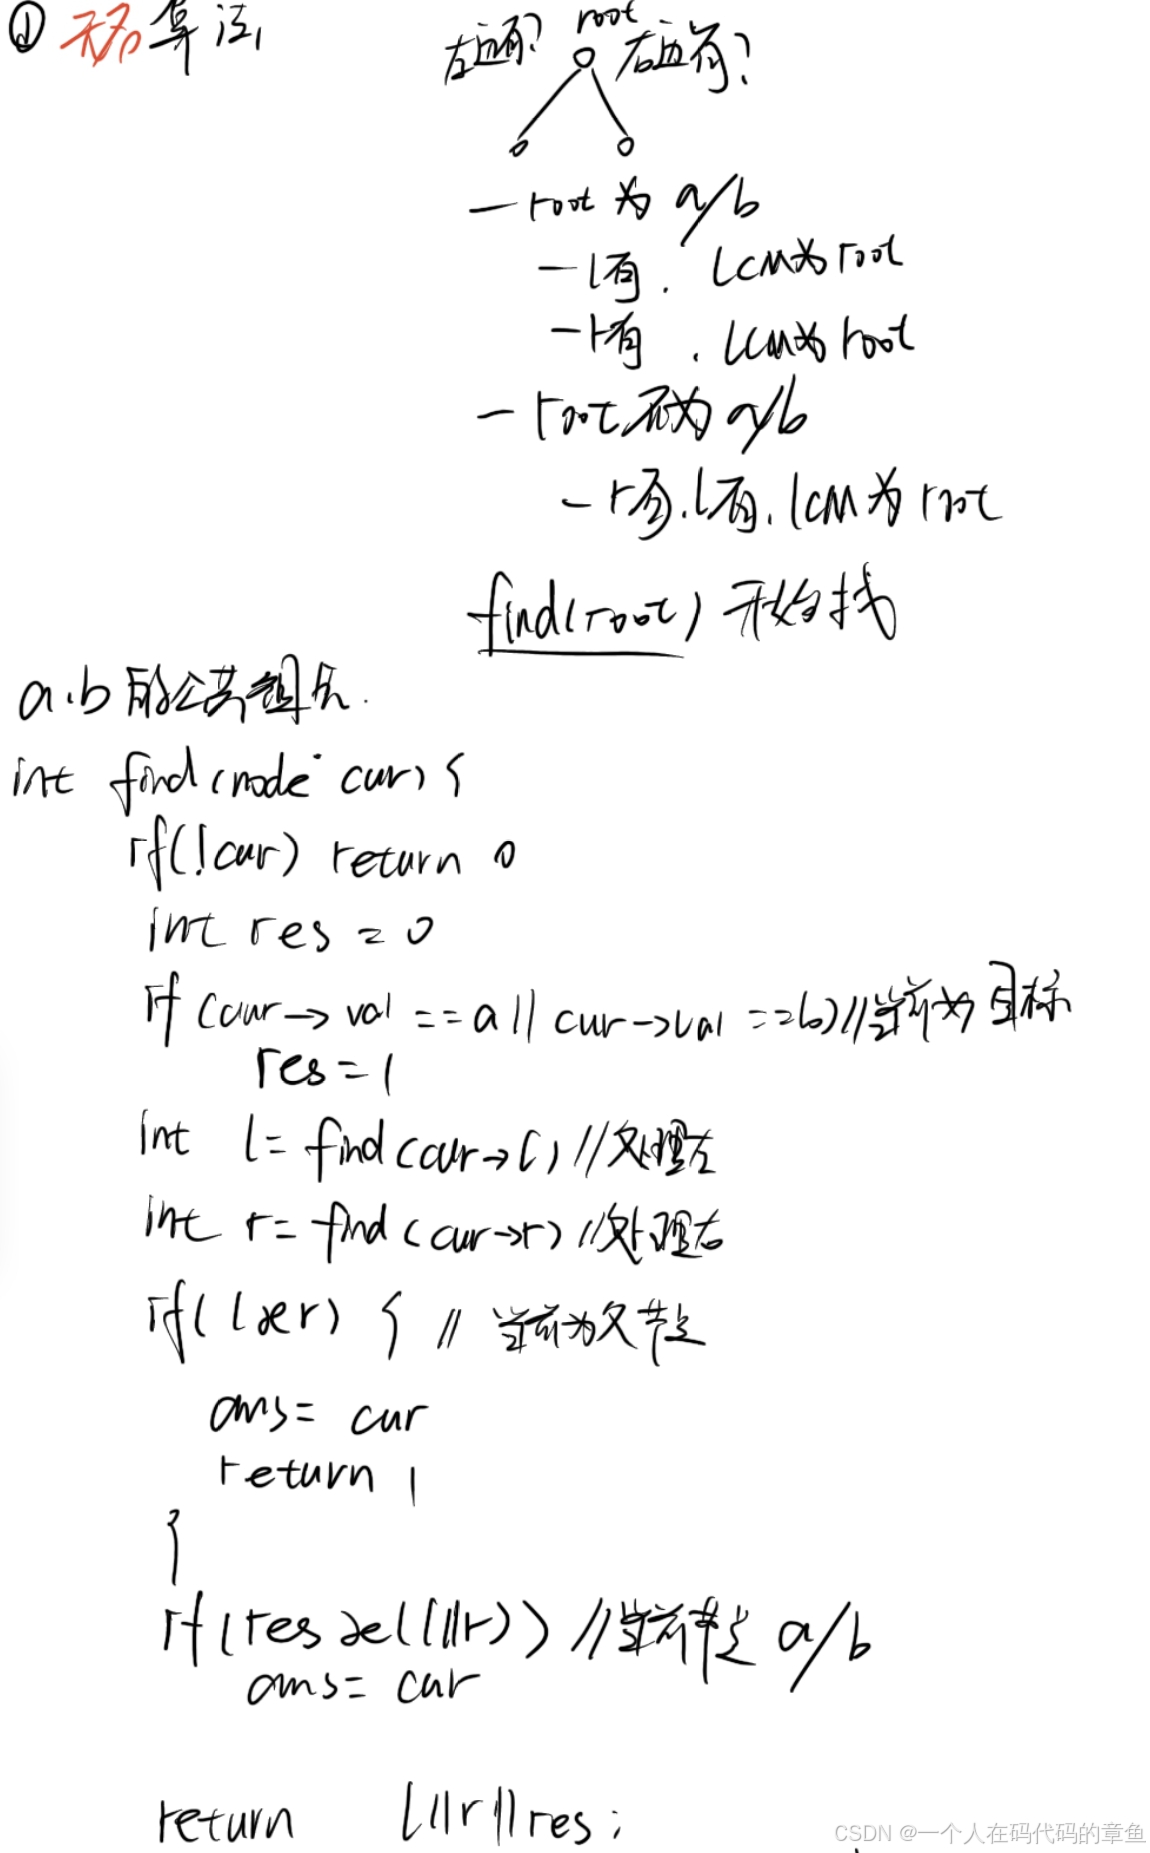 ① 无名算法
左边有? root 右边有?
— root 为 a/b
— l有. LCM为root
— r有. LCM为root
— root不为 a/b
— r有.l有.LCM为root
find(root) 开始找
a.b的公共祖先.
int find(node* cur) {
if(!cur) return 0
int res = 0
if (cur->val == a || cur->val == b) //当前为目标
res = 1
int l = find(cur->l) //处理左
int r = find(cur->r) //处理右
if(l&&r) { // 当前为父节点
ans = cur
return 1
}
if(res&&(l||r)) //当前节点 a/b
ans = cur
return l||r||res;
CSDN @一个人在码代码的章鱼